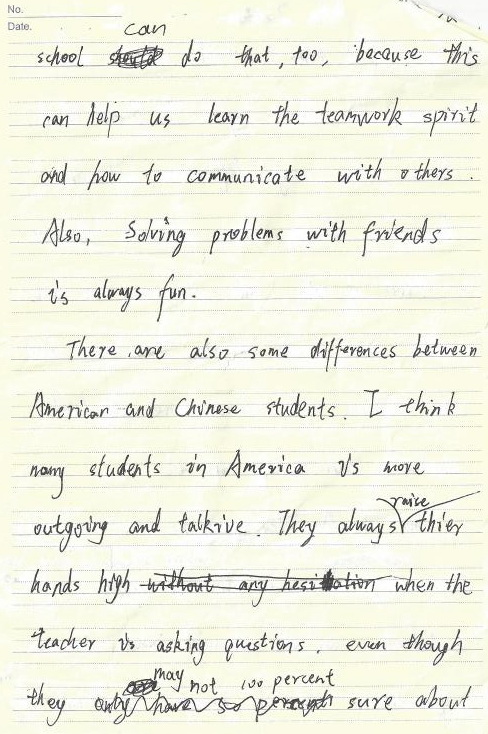 No.
Date.
can
school should do that, too, because this
can help us learn the teamwork spirit
and how to communicate with others.
Also, Solving problems with friends
is always fun.
There are also some differences between
American and Chinese students. I think
many students in America is more
outgoing and talkive. They always raise thier
hands high without any hesitation when the
teacher is asking questions, even though
may not 100 percent
they only have 50 percent sure about